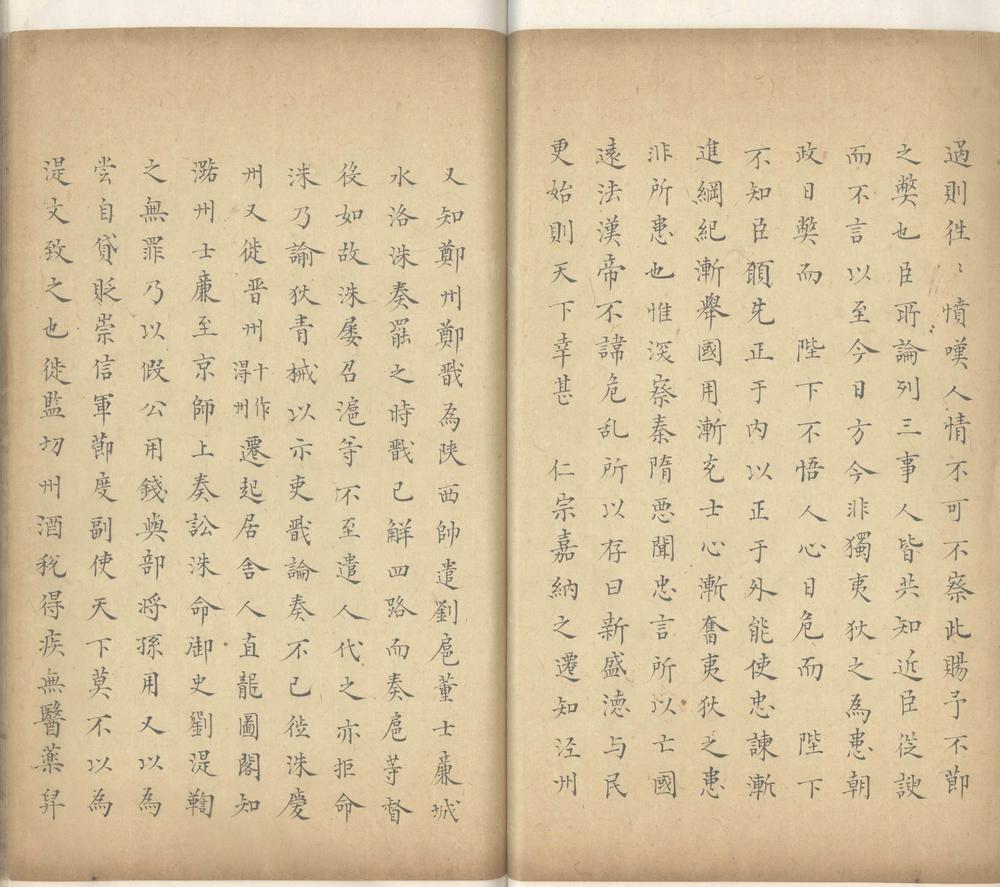 過則徃〻憤嘆人情不可不察此賜予不莭
之獘也臣所論列三事人皆共知近臣從諛
而不言以至今日方今非獨夷狄之為患朝
政日獘而　陛下不悟人心日危而　陛下
不知臣願先正于内以正于外能使忠諫漸
進綱紀漸舉國用漸充士心漸奮夷狄之患
非所患也惟深察秦隋悪聞忠言所以亡國
遠法漢帝不諱危乱所以存曰新盛徳与民
更始則天下幸甚　仁宗嘉納之遷知涇州
又知鄭州鄭戩為陝西帥遣劉扈董士廉城
水洛洙奏罷之時戩已觧四路而奏扈等督
役如故洙屡召滬等不至遣人代之亦拒命
洙乃諭狄青械以示吏戩論奏不已徙洙慶
州又徙晋州十作淂州遷起居舍人直龍圖閣知
潞州士廉至京師上奏訟洙命御史劉湜鞫
之無罪乃以假公用錢與部将孫用又以為
嘗自貸貶崇信軍莭度副使天下莫不以為
湜文致之也徙監切州酒稅得疾無醫薬舁